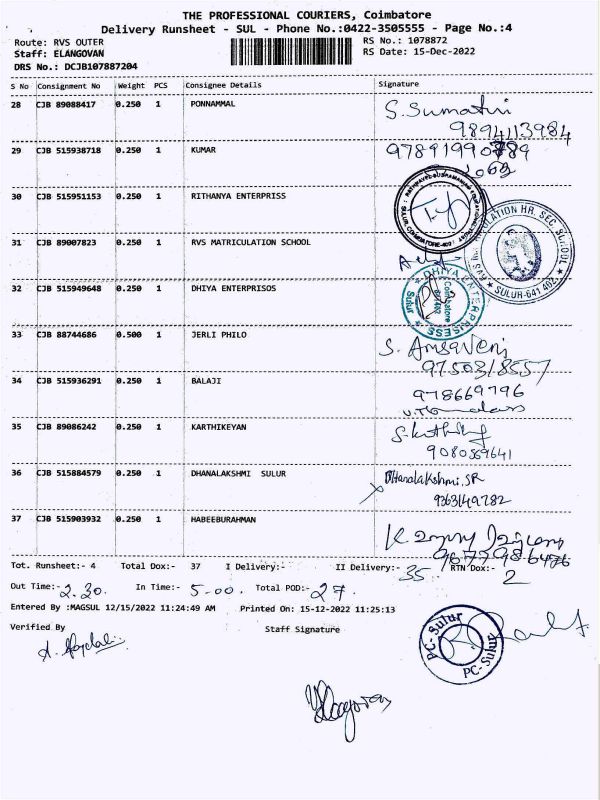 THE PROFESSIONAL COURIERS, Coimbatore
Delivery Runsheet - SUL - Phone No.:0422-3505555 - Page No.:4
Route: RVS OUTER
RS No.: 1078872
Staff: ELANGOVAN
RS Date: 15-Dec-2022
DRS No.: DCJB107887204
S No Consignment No Weight PCS Consignee Details Signature
28 CJB 89088417 0.250 1 PONNAMMAL S. Sumathi
9894113984
29 CJB 515938718 0.250 1 KUMAR
30 CJB 515951153 0.250 1 RITHANYA ENTERPRISS
31 CJB 89007823 0.250 1 RVS MATRICULATION SCHOOL
SULUR-641 402
32 CJB 515949648 0.250 1 DHIYA ENTERPRISOS
DHIYA ENTERPRISESS
Coimbatore
Sulur
33 CJB 88744686 0.500 1 JERLI PHILO S. Amsaveni
9750318557
34 CJB 515936291 0.250 1 BALAJI 978669796
35 CJB 89086242 0.250 1 KARTHIKEYAN
9080559641
36 CJB 515884579 0.250 1 DHANALAKSHMI SULUR Dhanalakshmi.SR
9363149782
37 CJB 515903932 0.250 1 HABEEBURAHMAN
Tot. Runsheet:- 4 Total Dox:- 37 I Delivery:- II Delivery:- 35 RTN Dox:- 2
Out Time:- 2.30. In Time:- 5.00. Total POD:- 27
Entered By :MAGSUL 12/15/2022 11:24:49 AM Printed On: 15-12-2022 11:25:13
Verified By Staff Signature
PC-Sulur
PC-Sulur